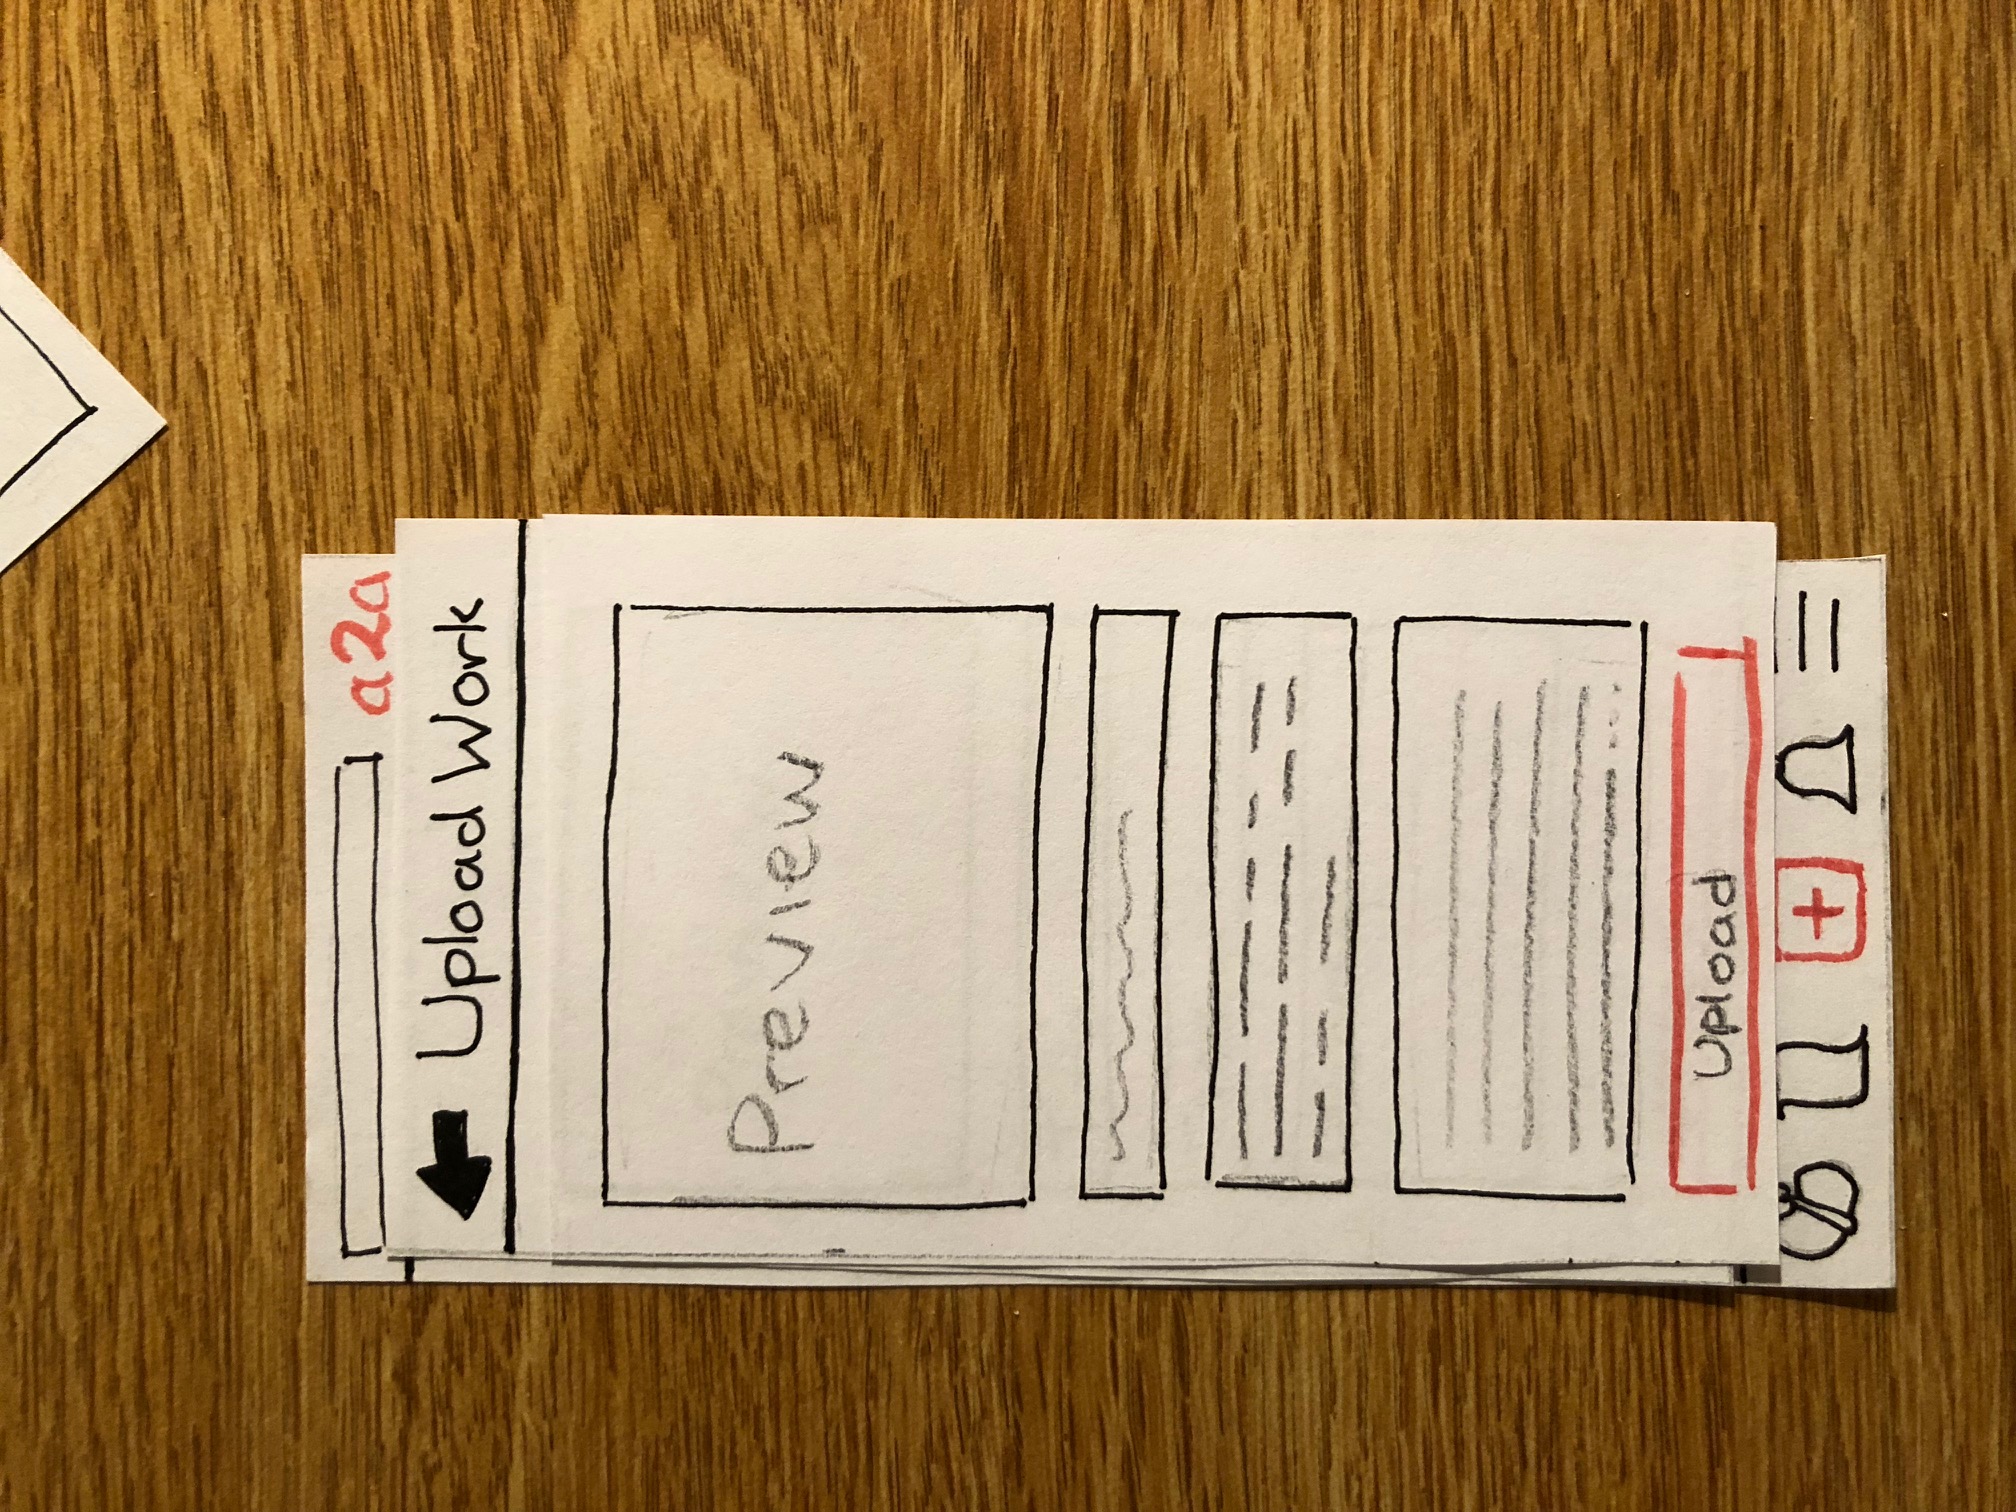 a2a
Upload Work
Preview
Upload